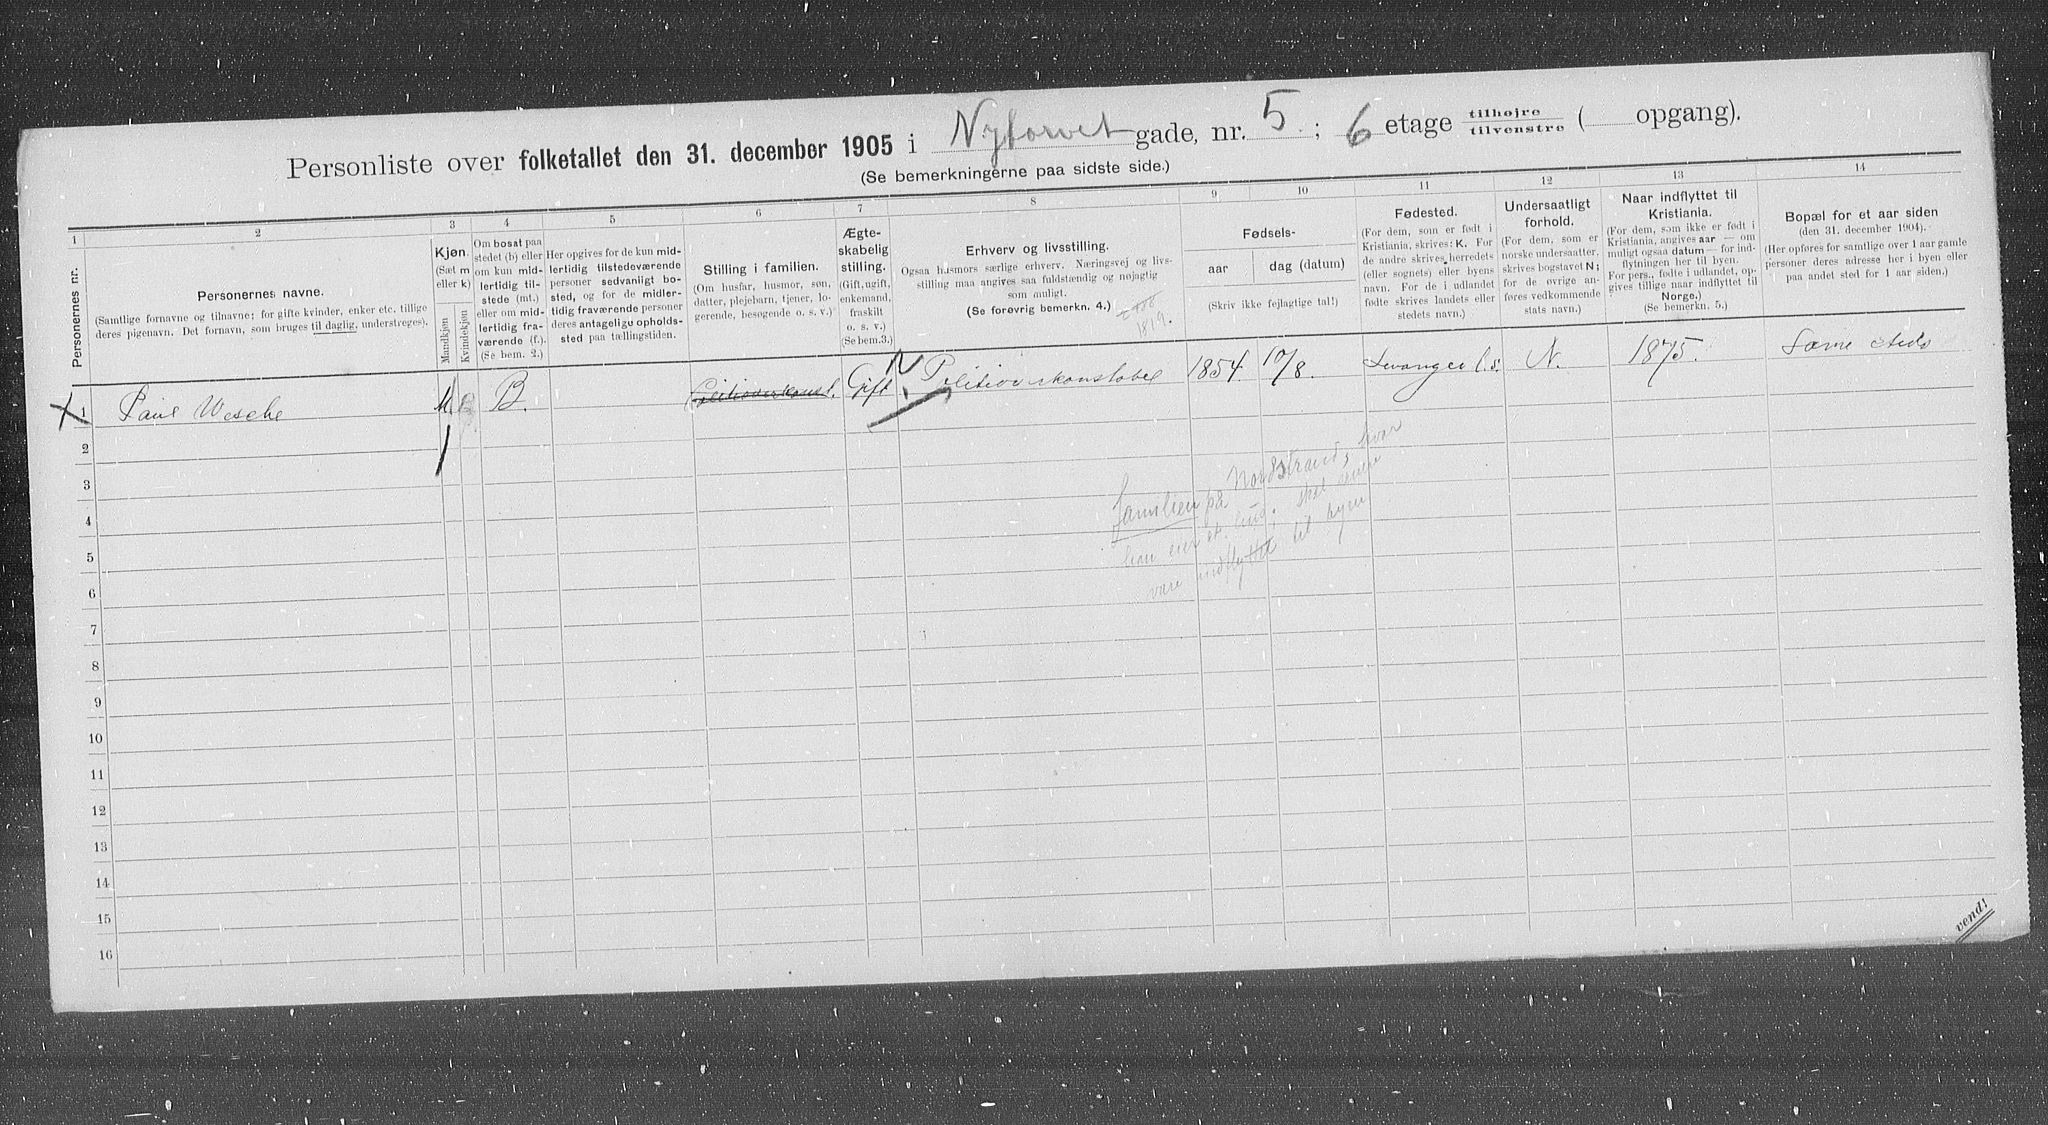 Personliste over folketallet den 31. december 1905 i Nytorvet gade, nr. 5. ; 6 etage tilhøjre tilvenstre ( opgang).
(Se bemerkningerne paa sidste side.)
1 2 3 4 5 6 7 8 9 10 11 12 13 14
Personernes nr.
Personernes navne.
(Samtlige fornavne og tilnavne; for gifte kvinder, enker etc. tillige
deres pigenavn. Det fornavn, som bruges til daglig, understreges).
Kjøn.
(Sæt m
eller k)
Mandkjøn
Kvindekjøn
Om bosat paa
stedet (b) eller
om kun mid-
lertidig til-
stede (mt.)
eller om mid-
lertidig fra-
værende (f.).
(Se bem. 2.)
Her opgives for de kun mid-
lertidig tilstedeværende
personer sedvanligt bo-
sted, og for de midler-
tidig fraværende personer
deres antagelige opholds-
sted paa tællingstiden.
Stilling i familien.
(Om husfar, husmor, søn,
datter, plejebarn, tjener, lo-
gerende, besøgende o. s. v.)
Ægte-
skabelig
stilling.
(Gift, ugift,
enkemand,
fraskilt
o. s. v.)
(Se bem.3.)
Erhverv og livsstilling.
Ogsaa husmors særlige erhverv. Næringsvej og livs-
stilling maa angives saa fuldstændig og nøjagtig
som muligt.
(Se forøvrig bemerkn. 4.)
1819.
Fødsels-
aar dag (datum)
(Skriv ikke fejlagtige tal!)
Fødested.
(For dem, som er født i
Kristiania, skrives: K. For
de andre skrives herredets
(eller sognets) eller byens
navn. For de i udlandet
fødte skrives landets eller
stedets navn.)
Undersaatligt
forhold.
(For dem, som er
norske undersaatter,
skrives bogstavet N;
for de øvrige an-
føres vedkommende
stats navn.)
Naar indflyttet til
Kristiania.
(For dem, som ikke er født i
Kristiania, angives aar — om
muligt ogsaa datum — for ind-
flytningen her til byen.
For pers., fødte i udlandet, op-
gives tillige naar indflyttet til
Norge.)
(Se bemerkn. 5.)
Bopæl for et aar siden
(den 31. december 1904).
(Her opføres for samtlige over 1 aar gamle
personer deres adresse her i byen eller
paa andet sted for 1 aar siden.)
X 1 Paul Wesche M. B. Politioverkonst. Gift N Politioverkonstabel 1854. 10/8. Levanger l.s. N. 1875. Samme steds
2
3
4
5
6
7
8
9
10
11
12
13
14
15
16
familien på Nordstrand, hvor
han eier et hus; skal senere
være indflyttet til byen
vend!